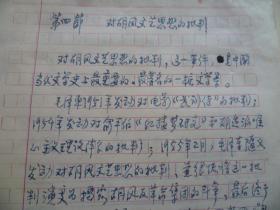 第四節 对胡风文艺思想的批判
对胡风文艺思想的批判，这一事件，是中国
当代文学史上最重要的、最著名的一桩文字案。
毛泽东1951年发动对电影《武训传》的批判；
1954年发动对俞平伯《红楼梦研究》和胡适派唯
心主义理论体系的批判；1955年2月，毛泽东又
发动对胡风文艺思想的批判，并很快将这一批
判演变为揭露胡风反革命集团的斗争，最后